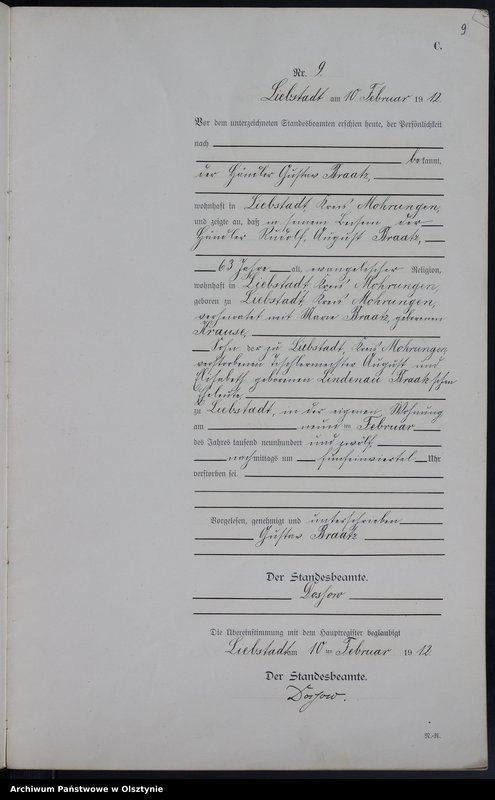 9
C.
Nr. 9
Liebstadt am 10 Februar 19 12.
Vor dem unterzeichneten Standesbeamten erschien heute, der Persönlichkeit
nach
bekannt,
der Händler Gustav Braatz,
wohnhaft in Liebstadt, Kreis Mohrungen,
und zeigte an, daß in seinem Beisein der
Händler Rudolf, August Braatz,
63 Jahre alt, evangelischer Religion,
wohnhaft in Liebstadt, Kreis Mohrungen,
geboren zu Liebstadt, Kreis Mohrungen,
verheiratet mit Marie Braatz, geborenen
Krause,
Sohn der zu Liebstadt, Kreis Mohrungen
verstorbenen Tischlermeister August und
Elisabeth geborenen Lindenau Braatz'schen
Eheleute,
zu Liebstadt, in der eigenen Wohnung
am neunten Februar
des Jahres tausend neunhundert und zwölf
nachmittags um fünfeinviertel Uhr
verstorben sei.
Vorgelesen, genehmigt und unterschrieben
Gustav Braatz
Der Standesbeamte.
Die Übereinstimmung mit dem Hauptregister beglaubigt
Liebstadt am 10 ten Februar 19 12
Der Standesbeamte.
Archiwum Państwowe w Olsztynie